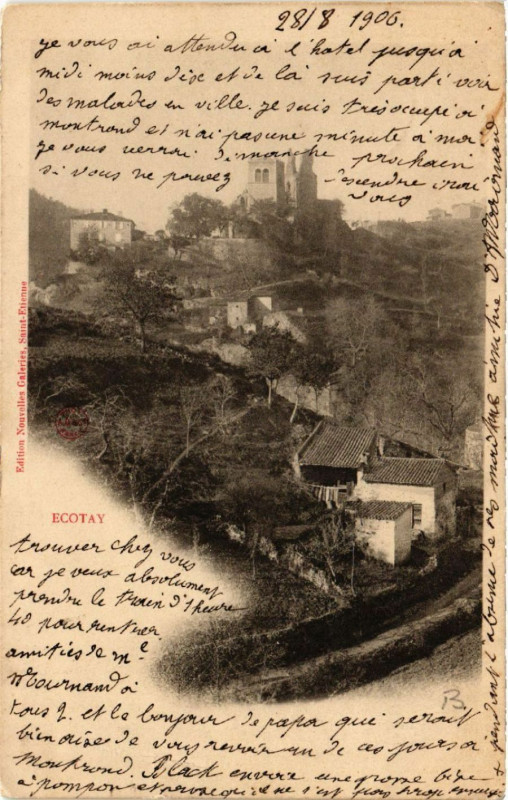 28/8 1906.
je vous ai attendu à l'hotel jusqu'à
midi moins dix et de là suis parti voir
des malades en ville. je suis très occupé à
montrond et n'ai pas une minute à moi
je vous verrai dimanche prochain
si vous ne pouvez descendre irai
vous
Edition Nouvelles Galeries, Saint-Etienne
ECOTAY
trouver chez vous
car je veux absolument
prendre le train d'1 heure
40 pour rentrer
amitiés de Me
Mournand à
tous 2. et le bonjour de papa qui serait
bien aise de vous revoir un de ces jours à
montrond. Black envoie une grosse bise
à pompon et qu'il ne s'est pas trop ennuyé
pendant l'absence de ses maîtres amitié Dr Mournand
B